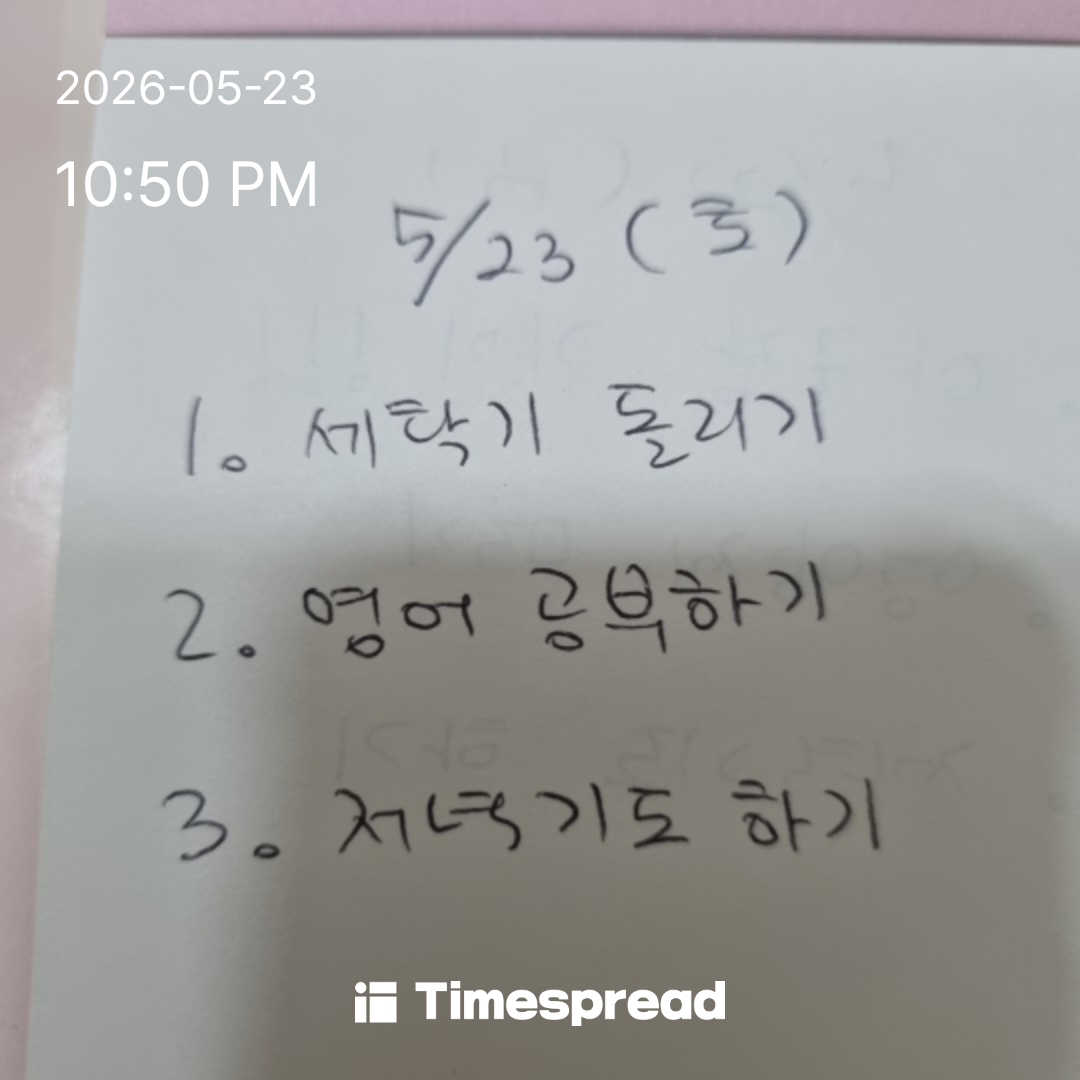 2026-05-23
10:50 PM
5/23 (토)
1. 세탁기 돌리기
2. 영어 공부하기
3. 저녁기도 하기
Timespread